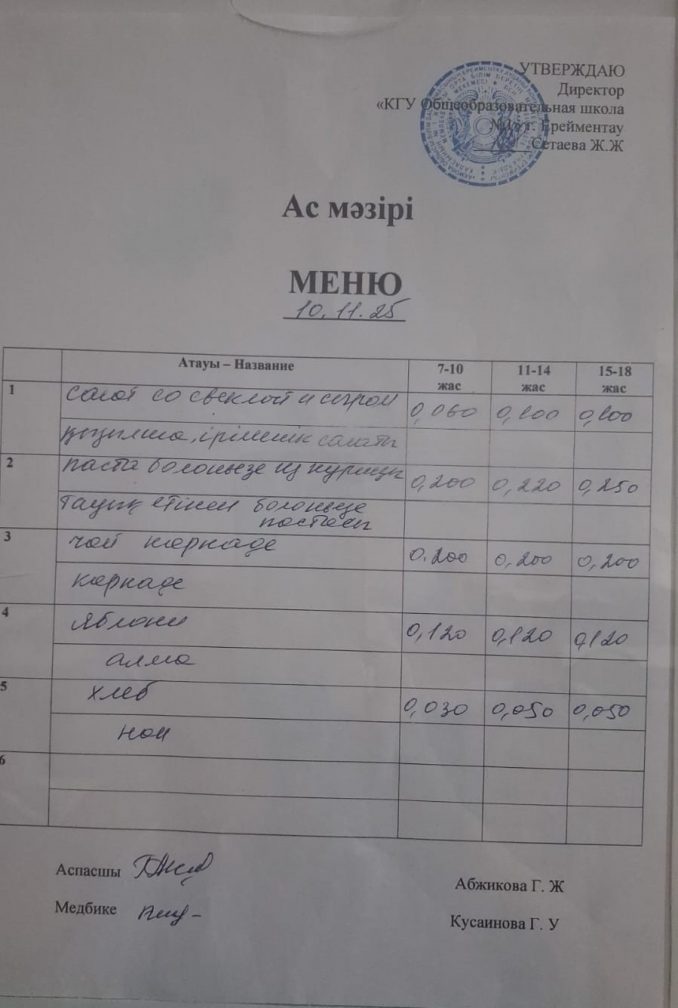 УТВЕРЖДАЮ
Директор
«КГУ Общеобразовательная школа
г. Ерейментау
Сетаева Ж.Ж
Ас мәзірі
МЕНЮ
10.11.25
Атауы – Название 7-10 жас 11-14 жас 15-18 жас
1 салат со свеклой и сыром 0,060 0,100 0,100
қызылша, ірімшік салаты
2 паста болоньезе из курицы 0,200 0,220 0,250
тауық етінен болоньезе
пастасы
3 чай каркаде 0.200 0,200 0,200
каркаде
4 яблоки 0,120 0,120 0,120
алма
5 хлеб 0,030 0,050 0,050
нан
6
Аспасшы Абжикова Г. Ж
Медбике Кусаинова Г. У